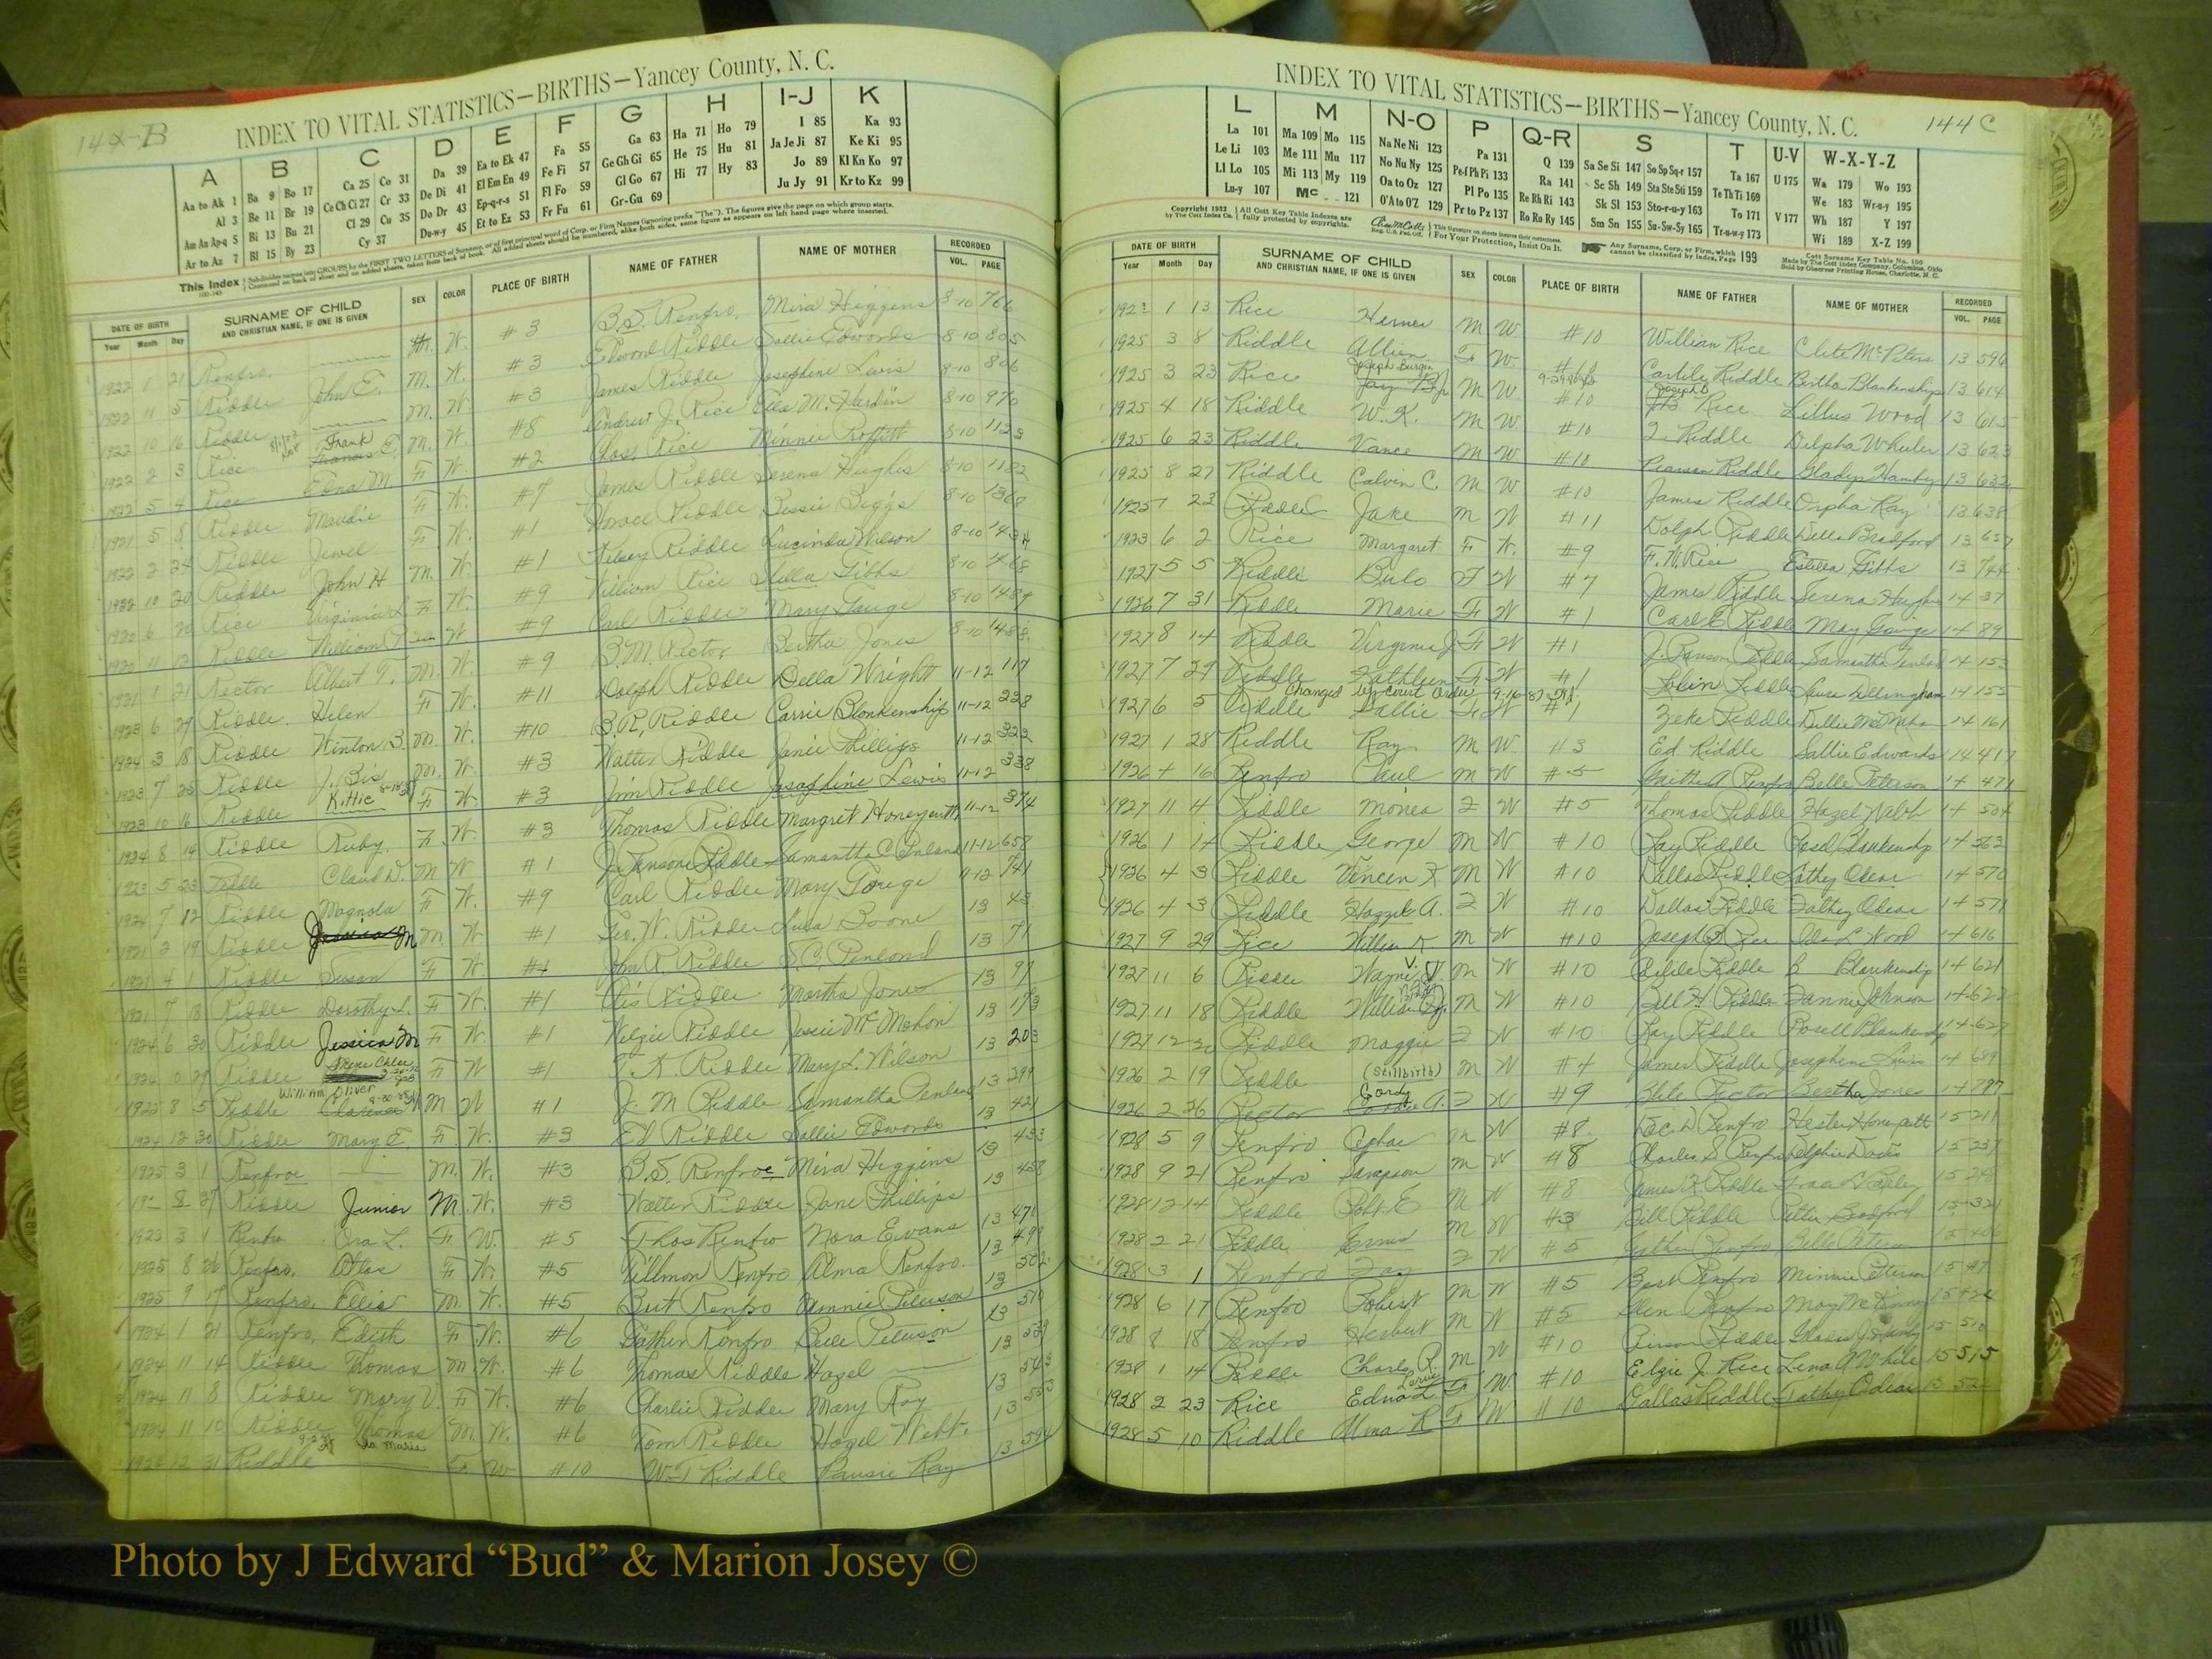 144-B
INDEX TO VITAL STATISTICS—BIRTHS—Yancey County, N. C.
A B C D E F G H I-J K
Aa to Ak 1 Ba 9 Bo 17 Ca 25 Co 31 Da 39 Ea to Ek 47 Fa 55 Ga 63 Ha 71 Ho 79 I 85 Ka 93
Al 3 Be 11 Br 19 Ce Ch Ci 27 Cr 33 De Di 41 El Em En 49 Fe Fi 57 Ge Gh Gi 65 He 75 Hu 81 Ja Je Ji 87 Ke Ki 95
Am An Ap-q 5 Bi 13 Bu 21 Cl 29 Cu 35 Do Dr 43 Ep-q-r-s 51 Fl Fo 59 Gl Go 67 Hi 77 Hy 83 Jo 89 Kl Kn Ko 97
Ar to Az 7 Bl 15 By 23 Cy 37 Du-w-y 45 Et to Ez 53 Fr Fu 61 Gr-Gu 69 Ju Jy 91 Kr to Kz 99
This Index
DATE OF BIRTH SURNAME OF CHILD SEX COLOR PLACE OF BIRTH NAME OF FATHER NAME OF MOTHER RECORDED
Year Month Day AND CHRISTIAN NAME, IF ONE IS GIVEN VOL. PAGE
1922 1 21 Renfro M. W. #3 B.S. Renfro, Mira Higgins 8-10 766
1922 11 5 Riddle John E. M. W. #3 Edward Riddle Sallie Edwards 8-10 805
1922 10 16 Riddle M. W. #3 James Riddle Josephine Lewis 8-10 806
1922 2 3 Rice Frank E. M. W. #8 Andrew J. Rice Ella M. Hardin 8-10 970
1922 5 4 Rice Edna M. F. W. #2 Chas. Rice Minnie Proffitt 8-10 1123
1921 5 8 Riddle Maudie F. W. #7 James Riddle Serena Hughes 8-10 1182
1922 2 24 Riddle Jewel F. W. #1 Horace Riddle Bessie Biggs 8-10 1368
1922 10 20 Riddle John H M. W. #1 Kelsey Riddle Lucinda Wilson 8-10 1434
1920 6 20 Rice Virginia L F. W. #9 William Rice Stella Gibbs 8-10 1468
Riddle William W #9 Carl Riddle Mary Gouge 8-10 1487
1921 1 21 Rector Albert G. M. W. #9 B.M. Rector Bertha Jones 8-10 1488
1923 6 29 Riddle Helen F. W. #11 Dolph Riddle Della Wright 11-12 117
1924 3 18 Riddle Winton B. M. W. #10 B.R. Riddle Carrie Blankenship 11-12 228
1923 7 25 Riddle J. Bis M. W. #3 Walter Riddle Janie Phillips 11-12 323
1923 10 16 Riddle Kittie F. W. #3 Jim Riddle Josephine Lewis 11-12 338
1924 8 14 Riddle Ruby F. W. #3 Thomas Riddle Margret Honeycutt 11-12 374
1923 5 23 Riddle Claud D. M W #1 J. Ransone Riddle Samantha C. Penland 11-12 658
1924 7 12 Riddle Magnola F W. #9 Carl Riddle Mary Gouge 11-12 741
1921 2 19 Riddle M. W. #1 Geo. W. Riddle Lula Boone 13 43
1921 4 1 Riddle Susan F. W. #1 John R. Riddle S.C. Penland 13 71
1921 7 18 Riddle Dorothy L. F. W. #1 Otis Riddle Martha Jones 13 97
1924 6 30 Riddle Jessica M F. W. #1 Welzie Riddle Jessie McMahon 13 173
Riddle Irene Chloe F W #1 T. K. Riddle Mary L. Wilson 13 203
8 5 Riddle William Oliver M W #1 J. M Riddle Samantha Penland 13 299
1924 12 30 Riddle Mary E. F. W. #3 Ed Riddle Sallie Edwards 13 421
1925 3 1 Renfroe M. W. #3 B.S. Renfroe Mira Higgins 13 433
8 27 Riddle Junior M. W. #3 Walter Riddle Jane Phillips 13 458
1923 3 1 Renfro Ora L. F. W. #5 Thos Renfro Nora Evans 13 471
1925 8 26 Renfro. Otlas F. W. #5 Tillmon Renfro Alma Renfro. 13 499
1925 9 17 Renfro. Ellis M. W. #5 Burt Renfro Minnie Peterson 13 502
1924 1 21 Renfro, Edith F. W. #6 Gaither Renfro Belle Peterson 13 510
1924 11 14 Riddle Thomas M. W. #6 Thomas Riddle Hazel 13 539
1924 11 8 Riddle Mary V. F. W. #6 Charlie Riddle Mary Ray 13 543
1924 11 10 Riddle Thomas M. W. #6 Tom Riddle Hazel Webb. 13 553
12 31 Riddle Marie F W #10 W T Riddle Pansie Ray 13 594
144 C
INDEX TO VITAL STATISTICS—BIRTHS—Yancey County, N. C.
L M N-O P Q-R S T U-V W-X-Y-Z
La 101 Ma 109 Mo 115 Na Ne Ni 123 Pa 131 Q 139 Sa Se Si 147 So Sp Sq-r 157 Ta 167 U 175 Wa 179 Wo 193
Le Li 103 Me 111 Mu 117 No Nu Ny 125 Pe-f Ph Pi 133 Ra 141 Sc Sh 149 Sta Ste Sti 159 Te Th Ti 169 We 183 Wr-u-y 195
Ll Lo 105 Mi 113 My 119 Oa to Oz 127 Pl Po 135 Re Rh Ri 143 Sk Sl 153 Sto-r-u-y 163 To 171 V 177 Wh 187 Y 197
Lu-y 107 Mc 121 O'A to O'Z 129 Pr to Pz 137 Ro Ru Ry 145 Sm Sn 155 Su-Sw-Sy 165 Tr-u-w-y 173 Wi 189 X-Z 199
Copyright 1932 by The Cott Index Co. All Cott Key Table Indexes are fully protected by copyrights. For Your Protection, Insist On It. Any Surname, Corp. or Firm, which cannot be classified by Index, Page 199 Cott Surname Key Table No. 100 Made by The Cott Index Company, Columbus, Ohio Sold by Observer Printing House, Charlotte, N. C.
DATE OF BIRTH SURNAME OF CHILD SEX COLOR PLACE OF BIRTH NAME OF FATHER NAME OF MOTHER RECORDED
Year Month Day AND CHRISTIAN NAME, IF ONE IS GIVEN VOL. PAGE
1 13 Rice Homer M W. #10 William Rice Clete McPeters 13 596
1925 3 8 Riddle Allien F W. Carlile Riddle Bertha Blankenship 13 614
1925 3 23 Rice Joseph Burgin M W #10 Joseph B Rice Lillus Wood 13 615
1925 4 18 Riddle W. K. M W #10 Riddle Delpha Wheeler 13 623
1925 6 23 Riddle Vance M W #10 Pearson Riddle Gladys Hamby 13 632
1925 8 27 Riddle Calvin C. M W #10 James Riddle Orpha Ray 13 638
1925 7 23 Riddle Jake M W #11 Dolph Riddle Della Bradford 13 657
1923 6 2 Rice Margaret F W. #9 F. W. Rice Estella Gibbs 13 744
1927 5 5 Riddle Bulo F W #7 James Riddle Serena Hughes 14 37
1926 7 31 Riddle Marie F W #1 Carl E Riddle May Gouge 14 89
1927 8 14 Riddle Virginia J F W #1 J. Ranson Riddle Samantha Penland 14 153
1927 7 29 Riddle Kathleen F W #1 Riddle Laura Dillingham 14 155
Changed by Court Order
1927 6 5 Riddle Sallie F W #1 Zeke Riddle Dillie McMahan 14 161
1927 1 28 Riddle Ray M W. #3 Ed Riddle Sallie Edwards 14 417
1926 4 16 Renfro Paul M W #5 Renfro Belle Peterson 14 471
1927 11 4 Riddle Monea F W #5 Thomas Riddle Hazel Webb 14 504
1926 1 14 Riddle George M W #10 Ray Riddle Blankenship 14 563
1926 4 3 Riddle M W #10 Dallas Riddle Fathey Odear 14 570
1926 4 3 Riddle A. F W #10 Dallas Riddle Fathey Odear 14 571
1927 9 29 Rice M W #10 Joseph B Rice Wood 14 616
1927 11 6 Riddle Wayne V. M W #10 Riddle B Blankenship 14 621
1927 11 18 Riddle William M W #10 Bill H. Riddle Fannie Johnson 14 622
1927 12 Riddle Maggie F W #10 Ray Riddle Rosell Blankenship 14 627
1926 2 19 Riddle (Stillbirth) M W #4 James Riddle Josephine Lewis 14 689
1926 2 26 Rector Gordy A. F W #9 Rector Bertha Jones 14 797
1928 5 9 Renfro Cephas M W #8 Doc. D Renfro Hester Honeycutt 15 211
1928 9 21 Renfro Sampson M W #8 Charles S Renfro Delphia Davis 15 237
1928 12 14 Riddle Robt E M W #8 James Riddle 15 248
1928 2 21 Riddle Ernis M W #3 Bill Riddle Bradford 15 321
1928 3 1 Renfro Fay F W #5 Renfro Belle Peterson 15 406
1928 6 17 Renfro Robert M W #5 Bert Renfro Minnie Peterson 15
1928 8 18 Renfro Herbert M W #5 Renfro May McKinney 15
1928 1 14 Riddle Charles R. M W #10 Riddle 15 510
1928 2 23 Rice Edna L F W. #10 Elzie J. Rice Lena White 15 515
1928 5 10 Riddle Alma R F W #10 Dallas Riddle Fathey Odear 15
Photo by J Edward “Bud” & Marion Josey ©